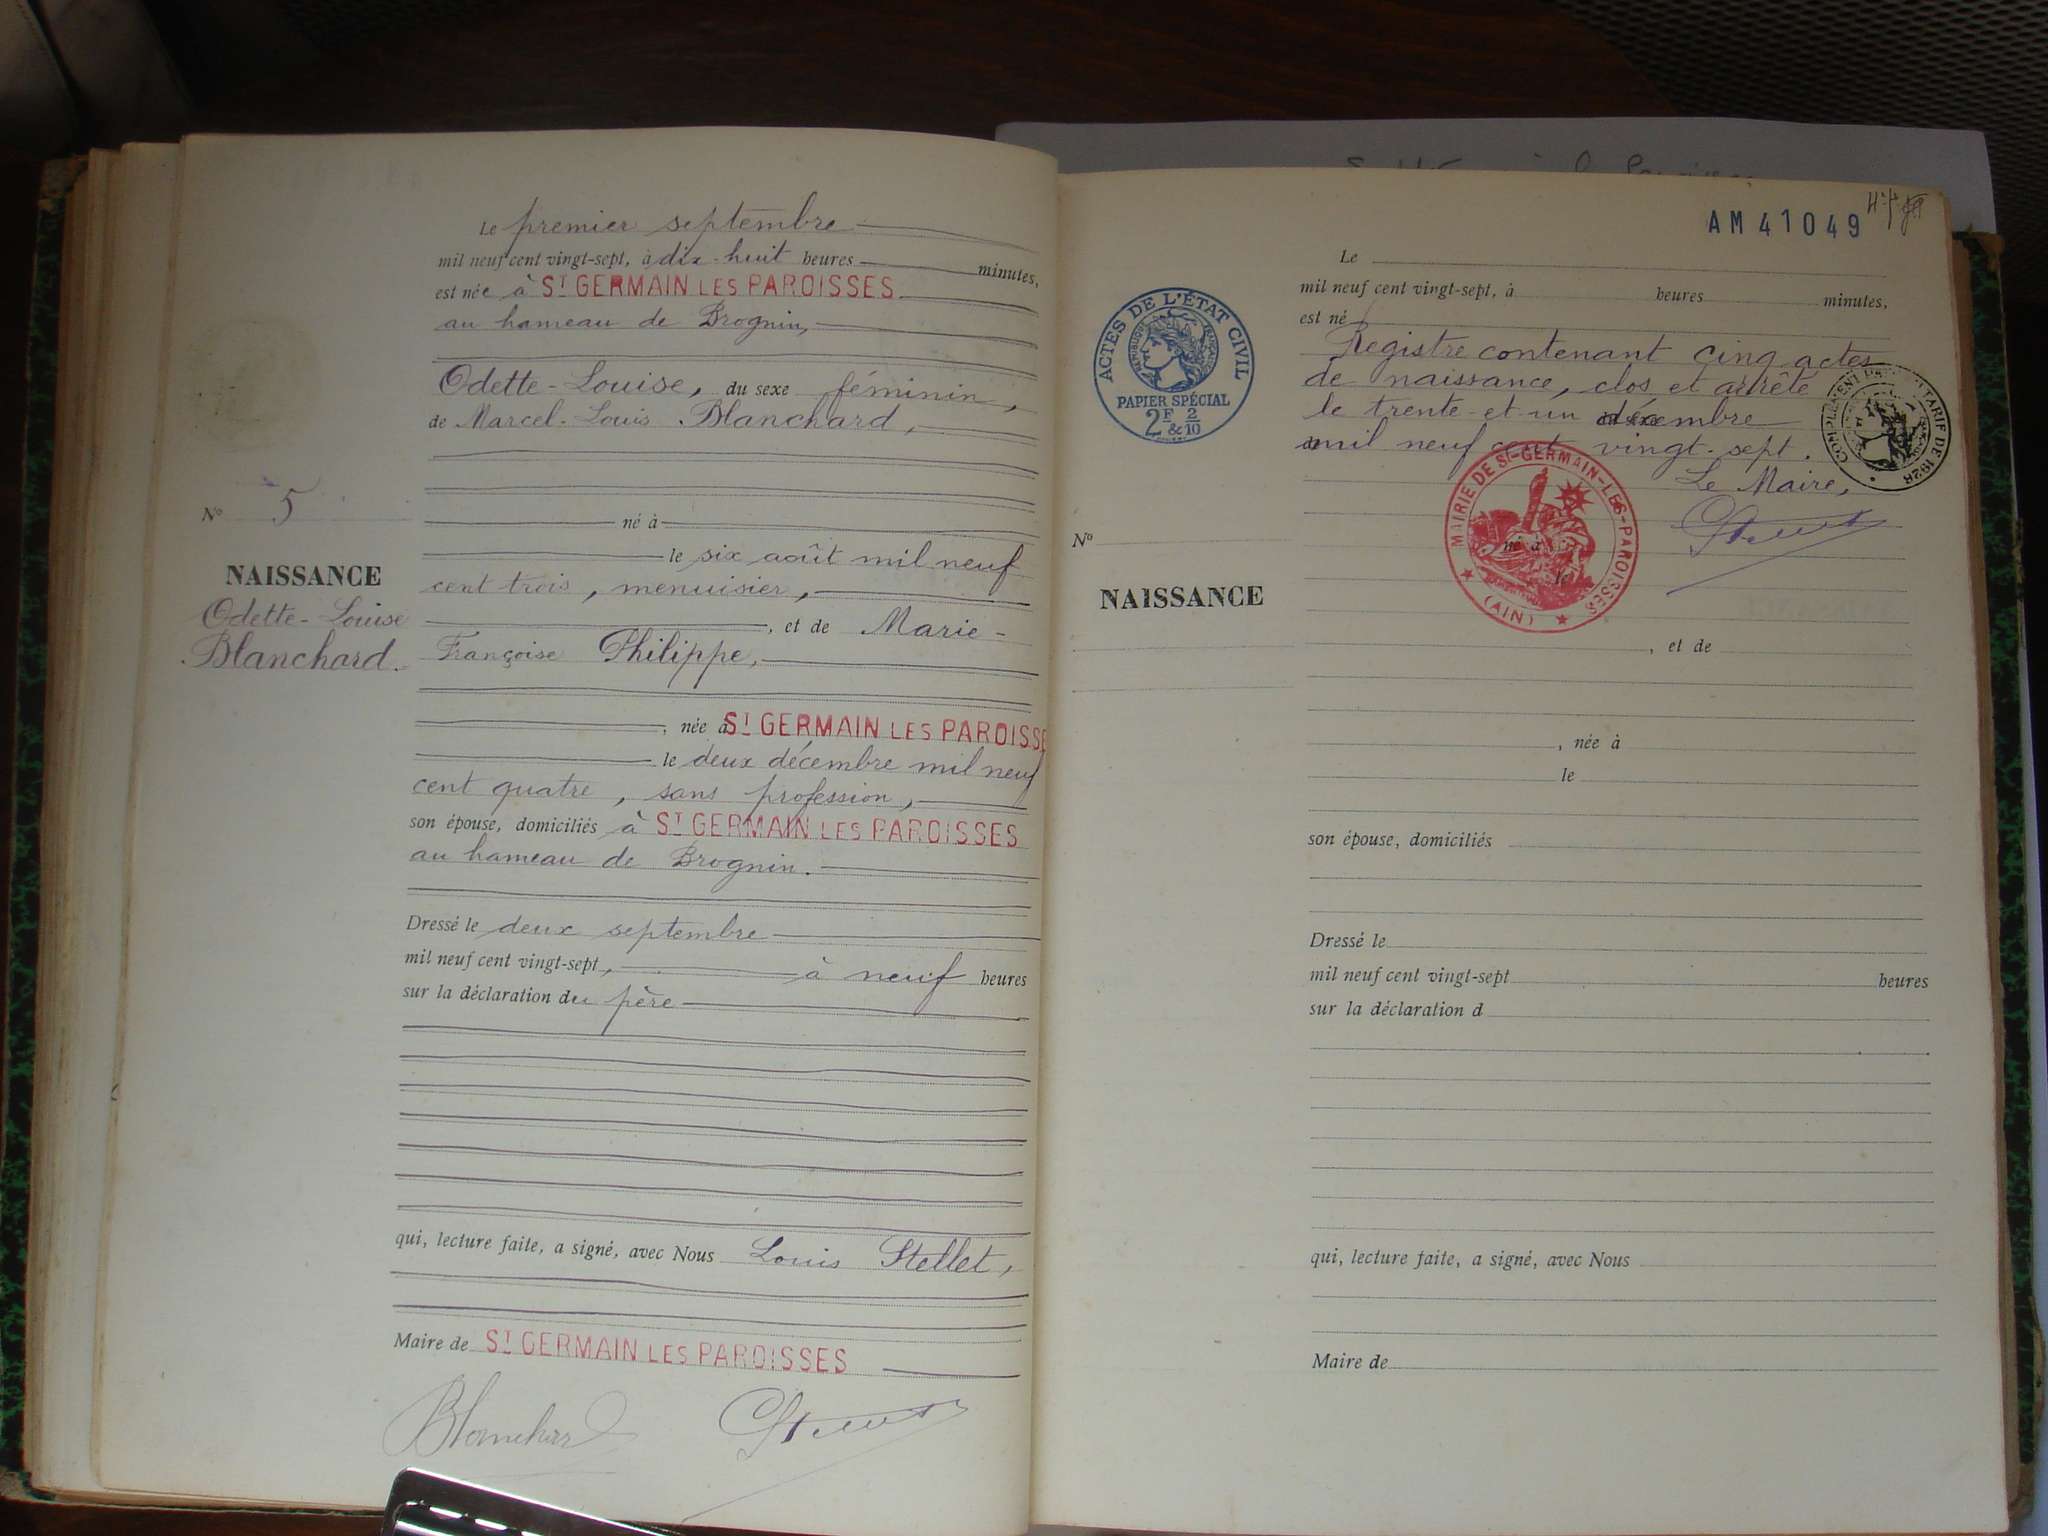 Le premier septembre
mil neuf cent vingt-sept, à dix-huit heures minutes,
est née à ST GERMAIN LES PAROISSES
au hameau de Brognin,
Odette-Louise, du sexe féminin,
de Marcel-Louis Blanchard,
né à
le six août mil neuf
cent trois, menuisier,
, et de Marie-
Françoise Philippe,
, née à ST GERMAIN LES PAROISSE
le deux décembre mil neuf
cent quatre, sans profession,
son épouse, domiciliés à ST GERMAIN LES PAROISSES
au hameau de Brognin.
Dressé le deux septembre
mil neuf cent vingt-sept, à neuf heures
sur la déclaration du père
qui, lecture faite, a signé, avec Nous Louis Stellet,
Maire de ST GERMAIN LES PAROISSES
Blanchard
No 5
NAISSANCE
Odette-Louise
Blanchard.
AM 41049
Le
mil neuf cent vingt-sept, à heures minutes,
est né
Registre contenant cinq actes
de naissance, clos et arrêté
le trente-et-un décembre
mil neuf cent vingt-sept.
Le Maire,
ACTES DE L'ÉTAT CIVIL
RÉPUBLIQUE FRANÇAISE
PAPIER SPÉCIAL
2F & 2/10
COMPLÉMENT TARIF DE 1928
MAIRIE DE ST-GERMAIN-LES-PAROISSES
(AIN)
né à
le
No
NAISSANCE
, et de
, née à
le
son épouse, domiciliés
Dressé le
mil neuf cent vingt-sept heures
sur la déclaration d
qui, lecture faite, a signé, avec Nous
Maire de